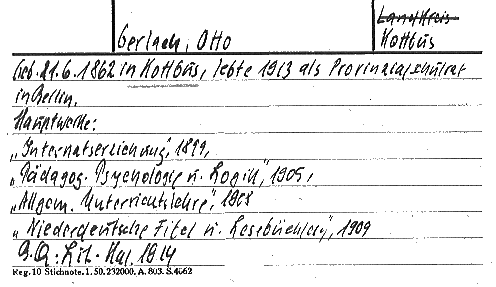 Gerlach, Otto
Landkreis
Kottbus
Geb. 21.6.1862 in Kottbus, lebte 1913 als Provinzialschulrat
in Berlin.
Hauptwerke:
„Internatserziehung", 1899,
„Pädagog. Psychologie u. Logik", 1905,
„Allgem. Unterrichtslehre", 1908
„Niederdeutsche Fibel u. Lesebüchlein", 1909
Lit. Kal. 1914
Reg. 10 Stichnote. 1. 50. 232000. A. 803. S. 4662